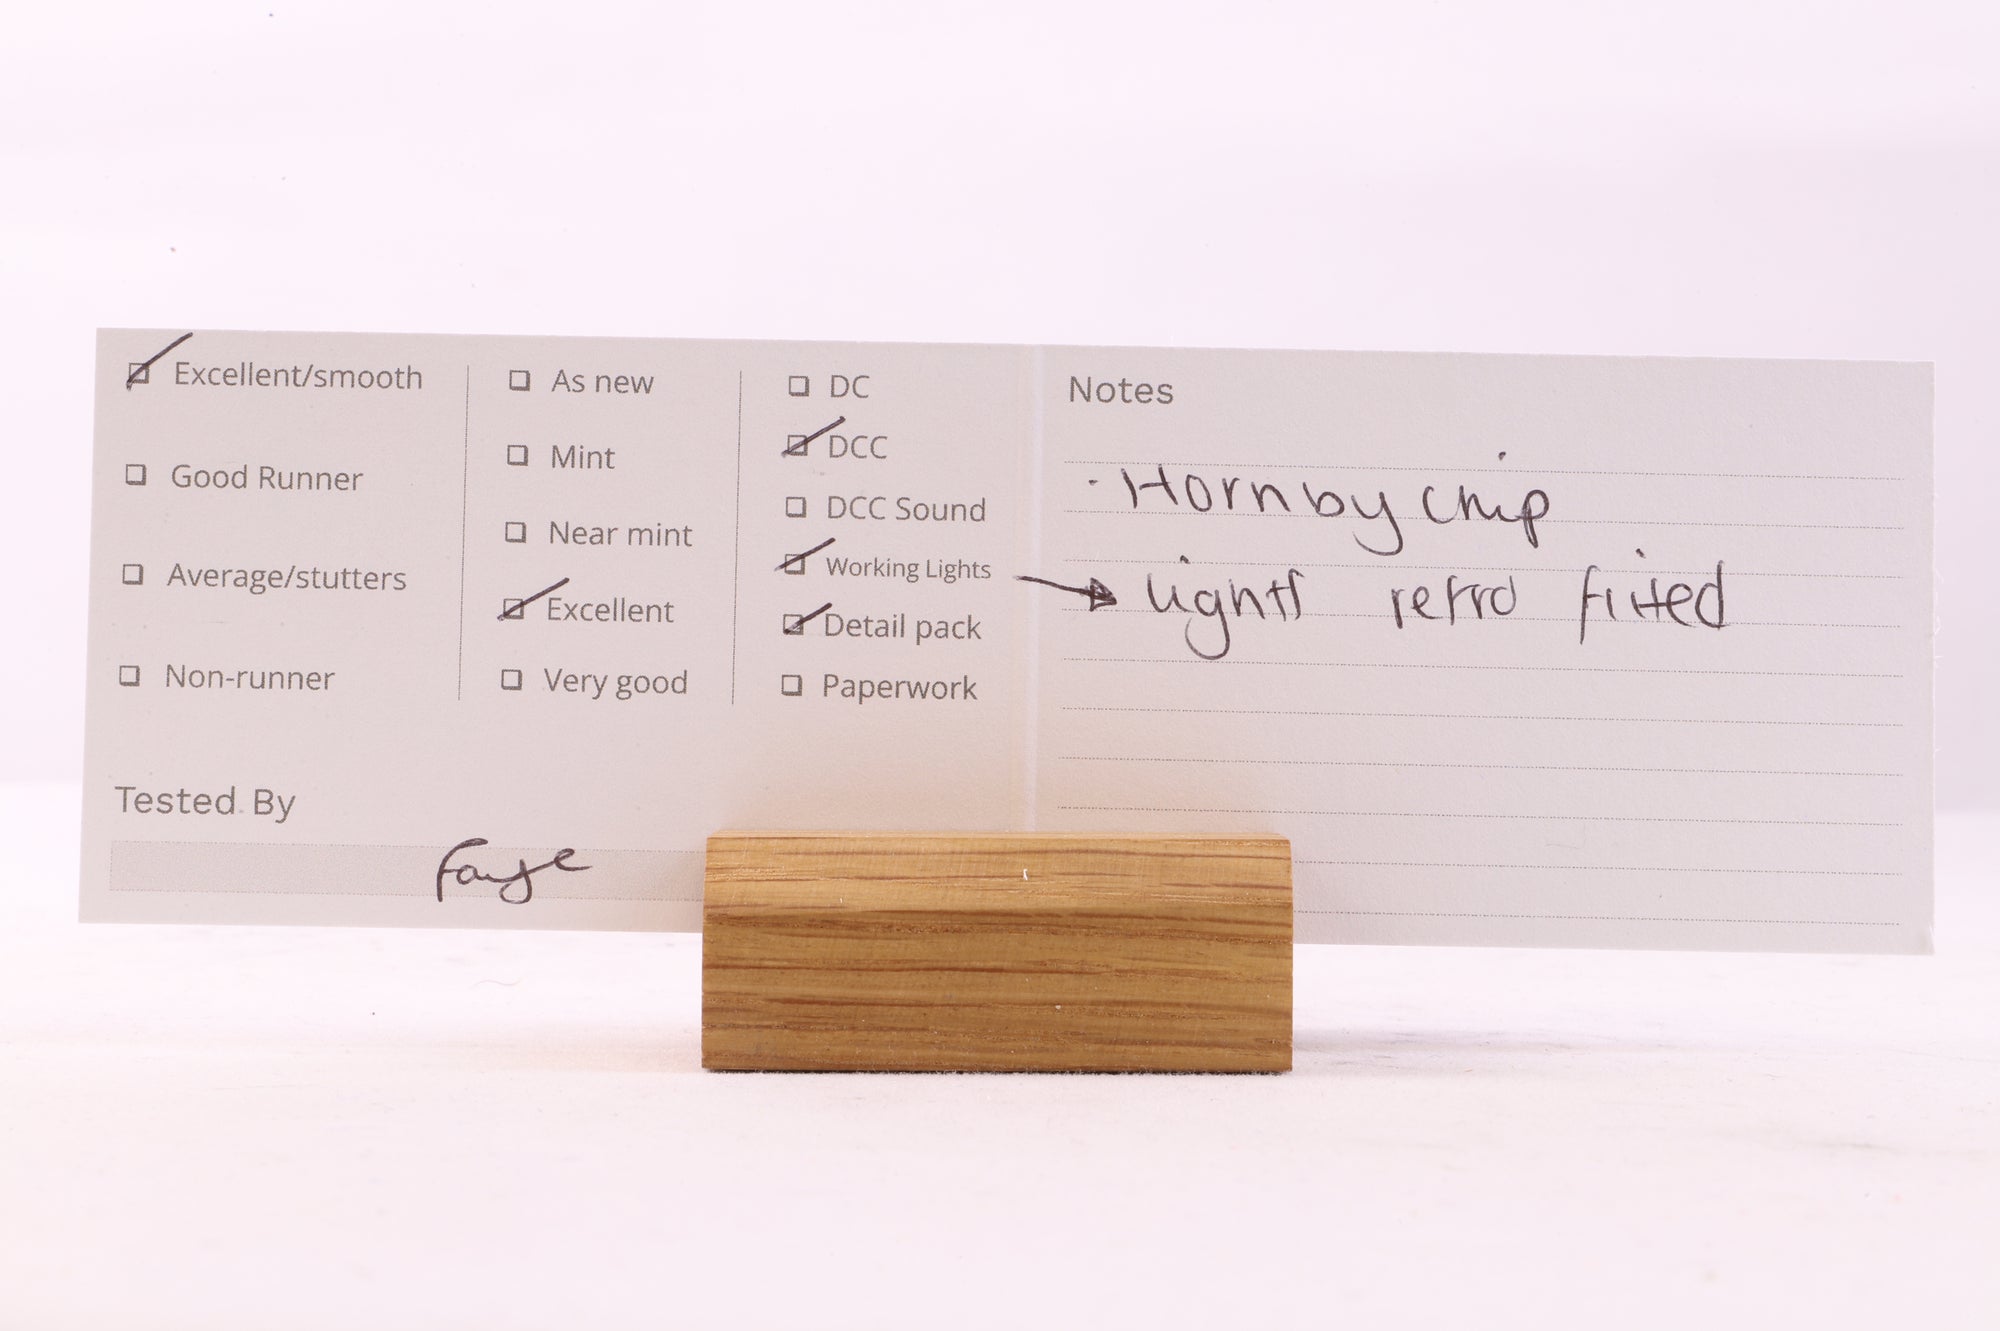 ☑ Excellent/smooth
☐ Good Runner
☐ Average/stutters
☐ Non-runner
☐ As new
☐ Mint
☐ Near mint
☑ Excellent
☐ Very good
☐ DC
☑ DCC
☐ DCC Sound
☑ Working Lights
☑ Detail pack
☐ Paperwork
Tested By
Faye
Notes
· Hornby chip
→ lights retro fitted